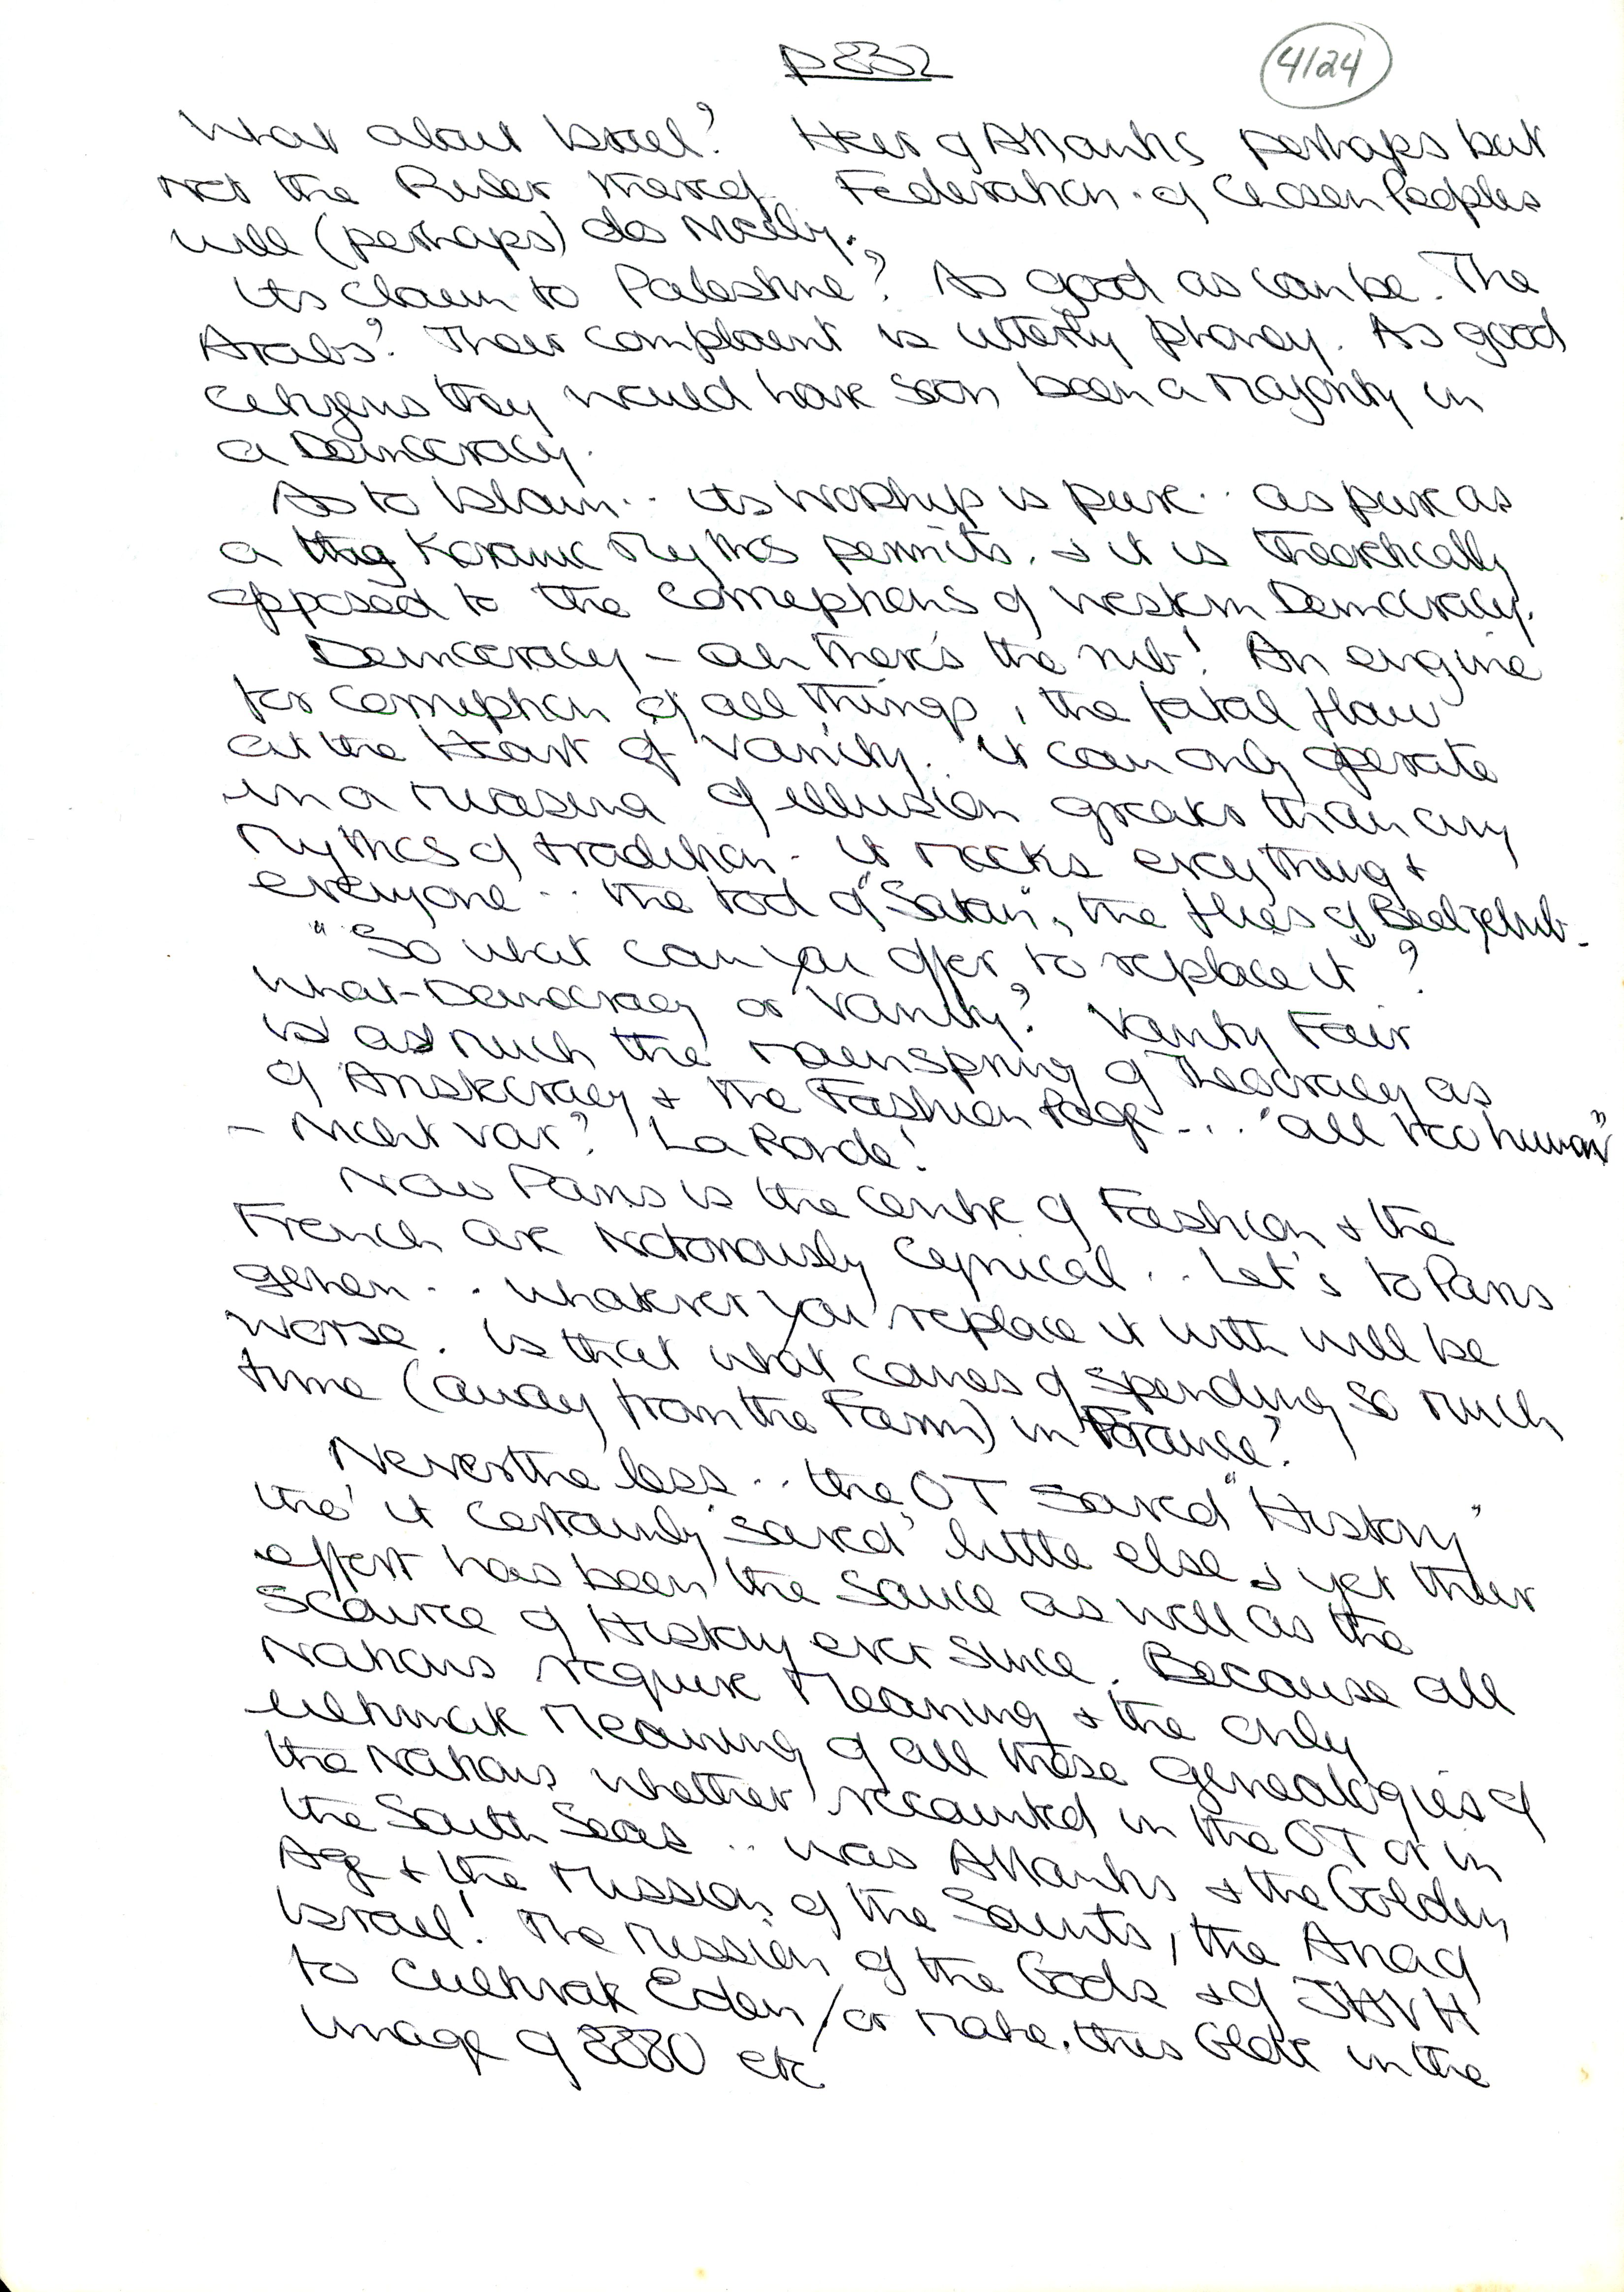 p832
4/24
What about Israel? Heir of Atlantis perhaps but
not the Ruler thereof. Federation of Chosen Peoples
will (perhaps) do nicely.
Its claim to Palestine? As good as can be. The
Arabs? Their complaint is utterly phoney. As good
citizens they would have soon been a majority in
a Democracy.
As to Islam .. its worship is pure .. as pure as
a Koranic Mythos permits. & it is theoretically
opposed to the corruptions of Western Democracy.
Democracy - ah there's the rub! An engine
for corruption of all things, the fatal flaw
at the Heart of Vanity. It can only operate
in a miasma of illusion greater than any
Mythos of tradition. It mocks everything &
everyone .. the tool of "Satan", the flies of Beelzebub.
"So what can you offer to replace it"?
What - Democracy or Vanity? Vanity Fair
is as much the mainspring of Theocracy as
of Aristocracy & the Fashion Page ... "all too human"
- Nicht var? La Ronde!
Now Paris is the centre of Fashion & the
French are notoriously cynical .. Let's to Paris
gehen .. whatever you replace it with will be
worse. Is that what comes of spending so much
time (away from the Farm) in France?
Nevertheless .. the OT saved "History"
tho' it certainly 'saved' little else & yet their
effort has been the sauce as well as the
source of History ever since. Because all
Nations require Meaning & the only
ultimate Meaning of all these genealogies of
the Nations whether recounted in the OT or in
the South Seas .. was Atlantis & the Golden
Age & the mission of the Saints, the Anaq
Israel! The Mission of the Gods & of JHVH
to cultivate Eden / or make this Globe in the
image of 8880 etc